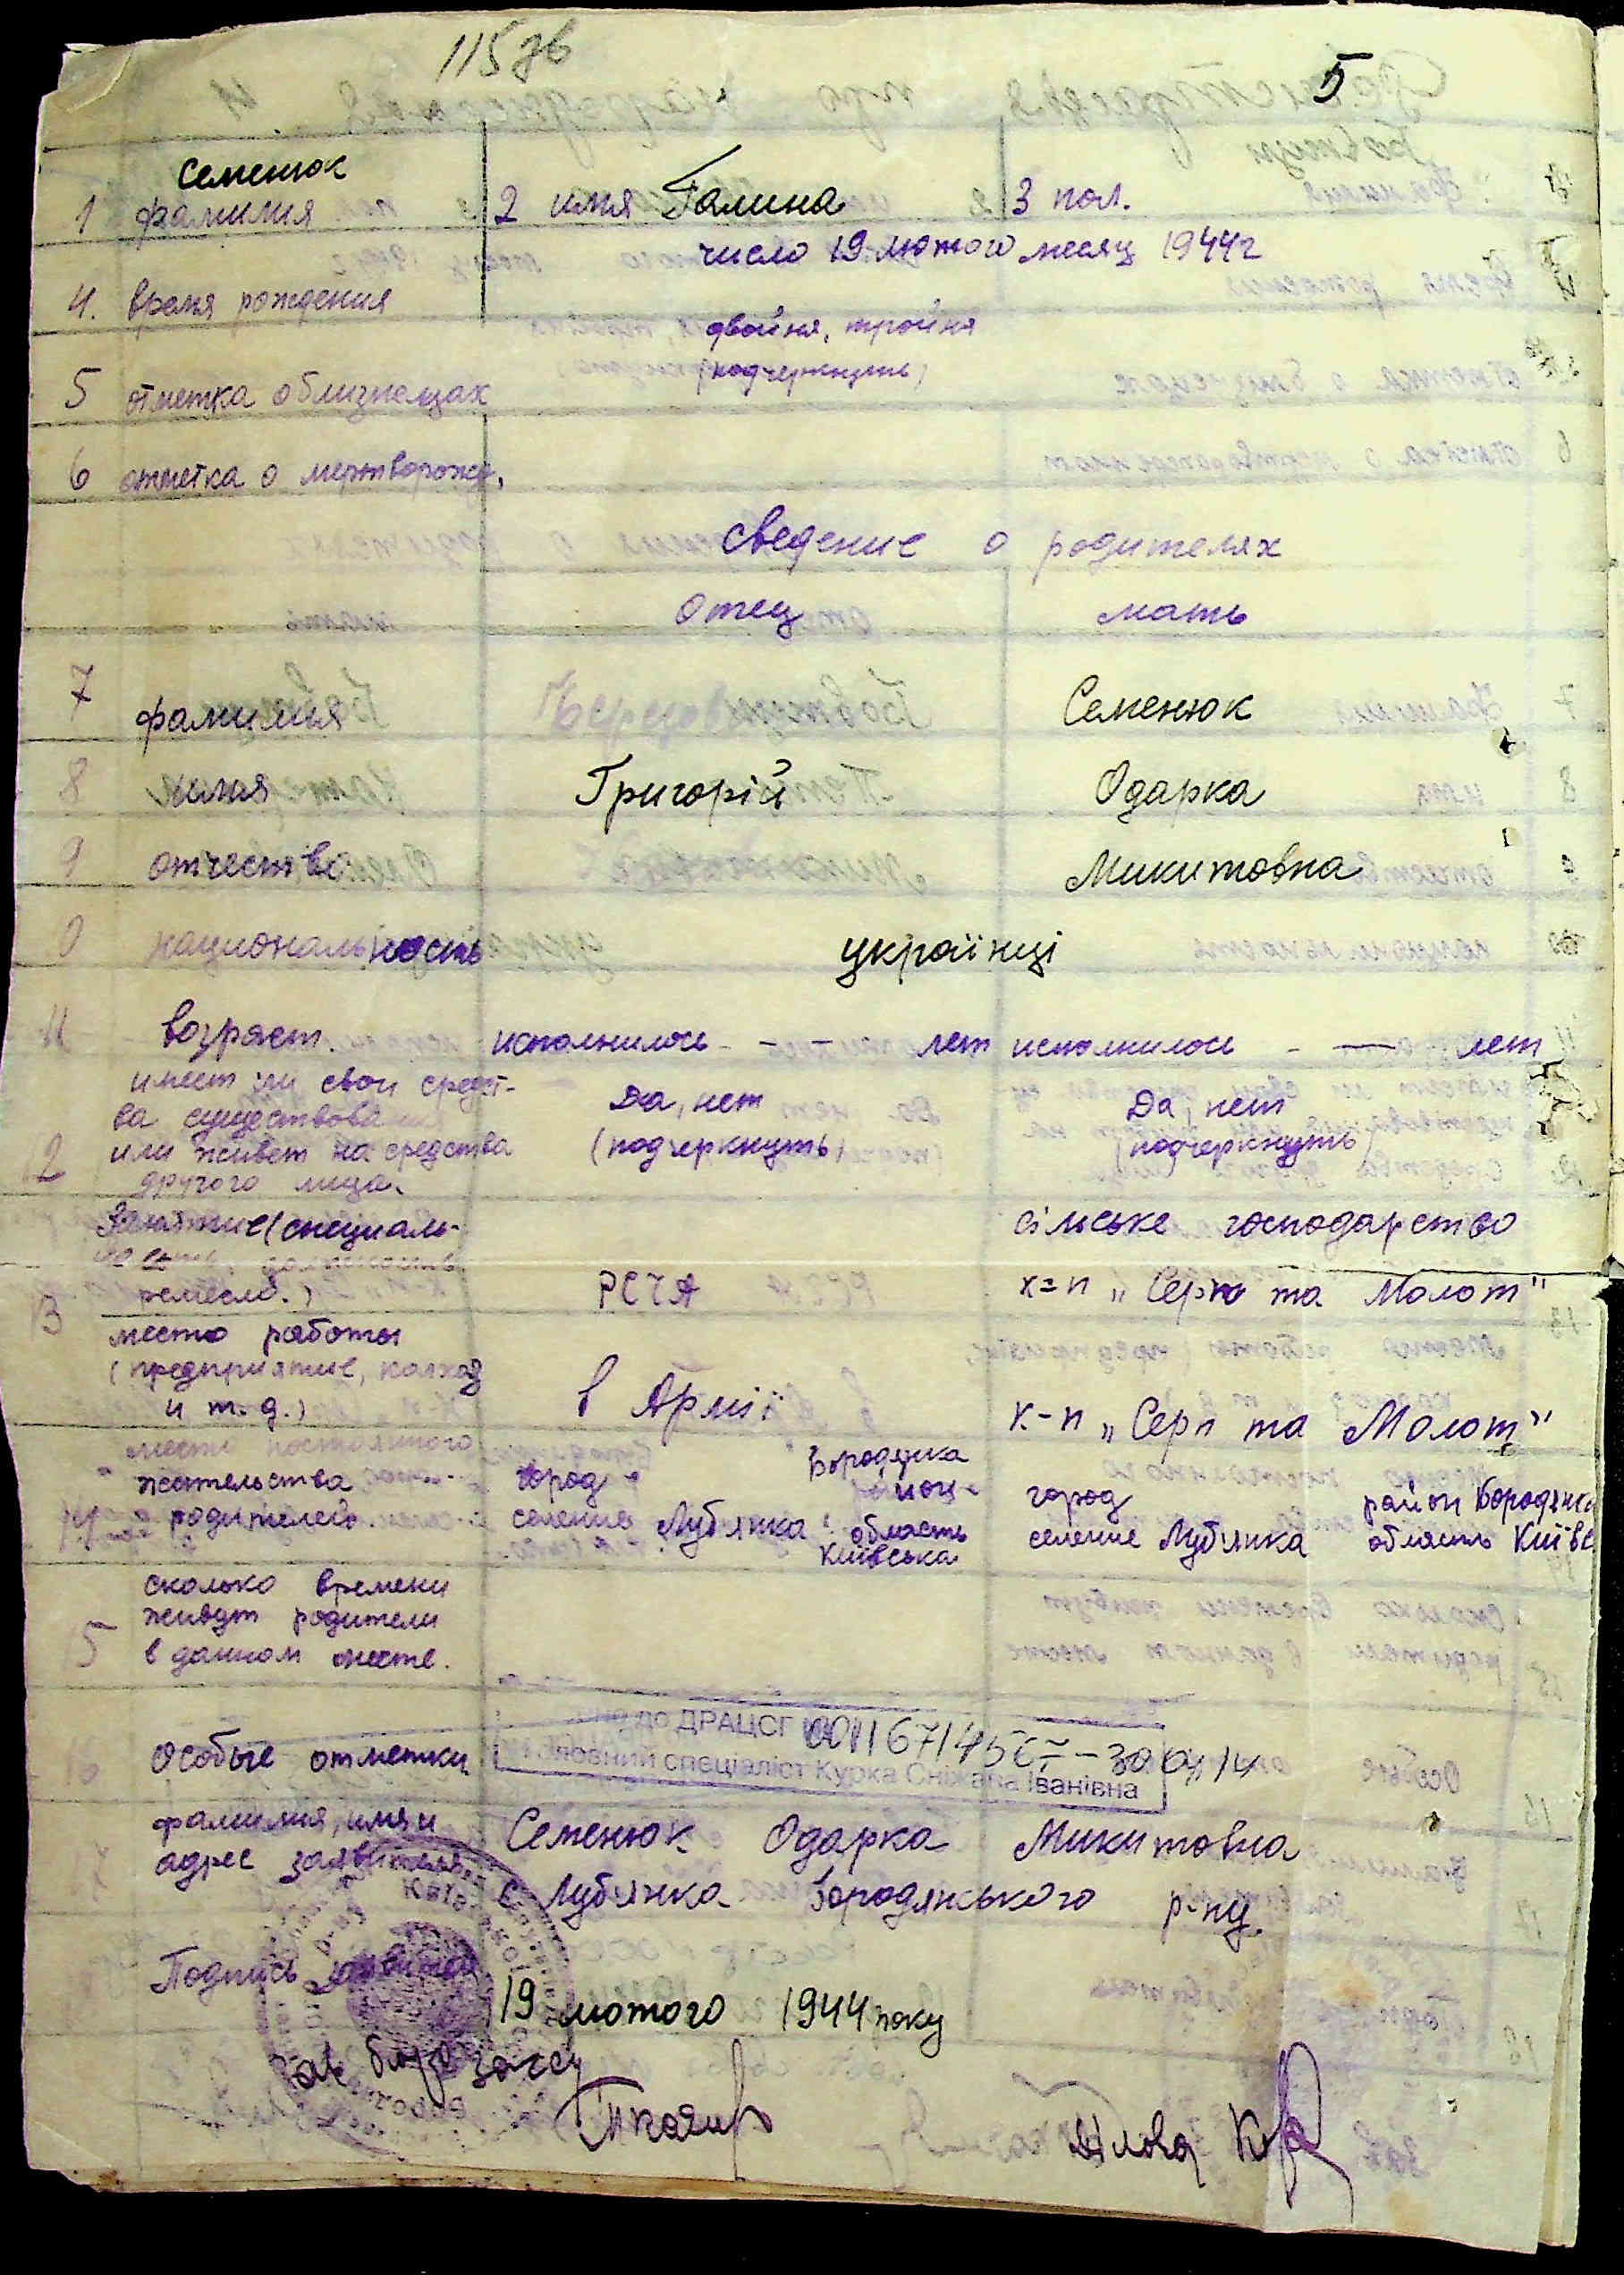 115 зв
5
Семенюк
1 фамилия 2 имя Галина 3 пол.
число 19 лютого месяц 1944 г
4. время рождения
двойня, тройня
(подчеркнуть)
5 отметка о близнецах
6 отметка о мертворожд.
сведение о родителях
отец мать
7 фамилия Семенюк
8 имя Григорій Одарка
9 отчество Микитовна
0 национальность українці
11 возраст. исполнилось - - - лет исполнилось - — лет
имеет ли свои средст-
ва существования
12 или живет на средства
другого лица.
Да, нет
(подчеркнуть)
Да, нет
(подчеркнуть)
Занятие (специаль-
ность, должность
13 ремесло.)
РСЧА
сільське господарство
к=п „Серп та Молот"
место работы
(предприятие, колхоз
и т. д.)
в Армії
к-п „Серп та Молот"
место постоянного
жительства
родителей.
город Бородянка
район
селение Лубянка область
Київська
город район Бородянка
селение Лубянка область Київс
сколько времени
живут родители
5 в данном месте.
16 Особые отметки
до ДРАЦСГ
Головний спеціаліст Курка Сніжана Іванівна
фамилия, имя и
адрес заявителя
Семенюк Одарка Микитовна
с Лубянка Бородянського р-ну.
Подпись заявителя
19 лютого 1944 року
Зав бюро загсу